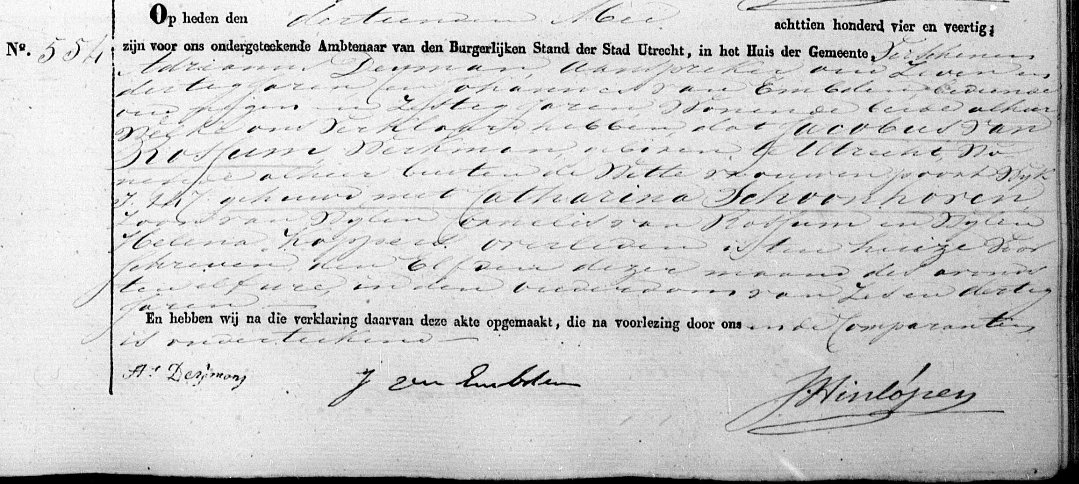 Op heden den dertienden Mei achttien honderd vier en veertig;
No. 554 zijn voor ons ondergeteekende Ambtenaar van den Burgerlijken Stand der Stad Utrecht, in het Huis der Gemeente, Verschenen
Adrianus Deyman, Aanspreker oud Zeven en
dertig Jaren en Johannes van Embden bediende
oud negen en Zestig Jaren, Wonende beide alhier
Welke ons Verklaard hebben dat Jacobus van
Rossum, Werkman, geboren te Utrecht, Wo
nende alhier buiten de Witte vrouwen poort Wijk
J. 487 gehuwd met Catharina Schoonhoven,
Zoon van Wijlen Cornelis van Rossum en Wijlen
Helena Kospers, overleden is ten huize Voor
schreven, den Elfden dezer maand des avonds
ten elf ure, in den ouderdom van Zes en dertig
Jaren
En hebben wij na die verklaring daarvan deze akte opgemaakt, die na voorlezing door ons en de Comparanten
is onderteekend
As Deijman
J van Embden
Hinlópen